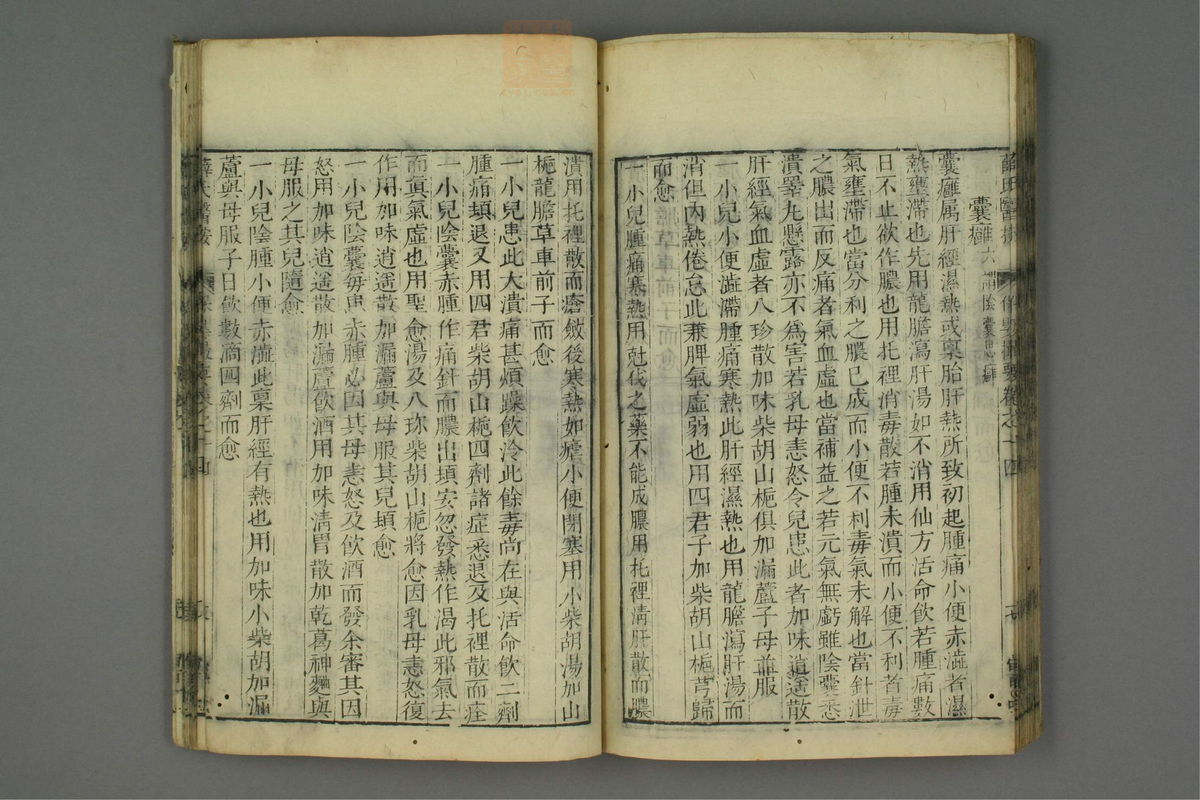 囊癰
囊癰属肝經濕熱或稟胎肝熱所致初起腫痛小便赤澁者濕
熱壅滯也先用龍膽瀉肝湯如不消用仙方活命飲若腫痛數
日不止欲作膿也用托裡消毒散若腫未潰而小便不利者毒
氣壅滯也當分利之膿已成而小便不利毒氣未解也當針泄
之膿出而反痛者氣血虛也當補益之若元氣無虧雖陰囊悉
潰睪丸懸露亦不為害若乳母恚怒令兒患此者加味逍遥散
肝經氣血虛者八珍散加味柴胡山梔俱加漏蘆子母並服
一小兒小便澁滯腫痛寒熱此肝經濕熱也用龍膽瀉肝湯而
消但内熱倦怠此兼脾氣虛弱也用四君子加柴胡山梔芎歸
而愈
一小兒腫痛寒熱用尅伐之藥不能成膿用托裡清肝散而膿
潰用托裡散而瘡斂後寒熱如瘧小便閉塞用小柴胡湯加山
梔龍膽草車前子而愈
一小兒患此大潰痛甚煩躁飲冷此餘毒尚在與活命飲二劑
腫痛頓退又用四君柴胡山梔四劑諸症悉退及托裡散而痊
一小兒陰囊赤腫作痛針而膿出頓安忽發熱作渴此邪氣去
而真氣虛也用聖愈湯及八珎柴胡山梔將愈因乳母恚怒復
作用加味逍遥散加漏蘆與母服其兒頓愈
一小兒陰囊每患赤腫必因其母恚怒及飲酒而發余審其因
怒用加味逍遥散加漏蘆飲酒用加味清胃散加乾葛神麯與
母服之其兒隨愈
一小兒陰腫小便赤澁此稟肝經有熱也用加味小柴胡加漏
蘆與母服子日飲數滴四劑而愈